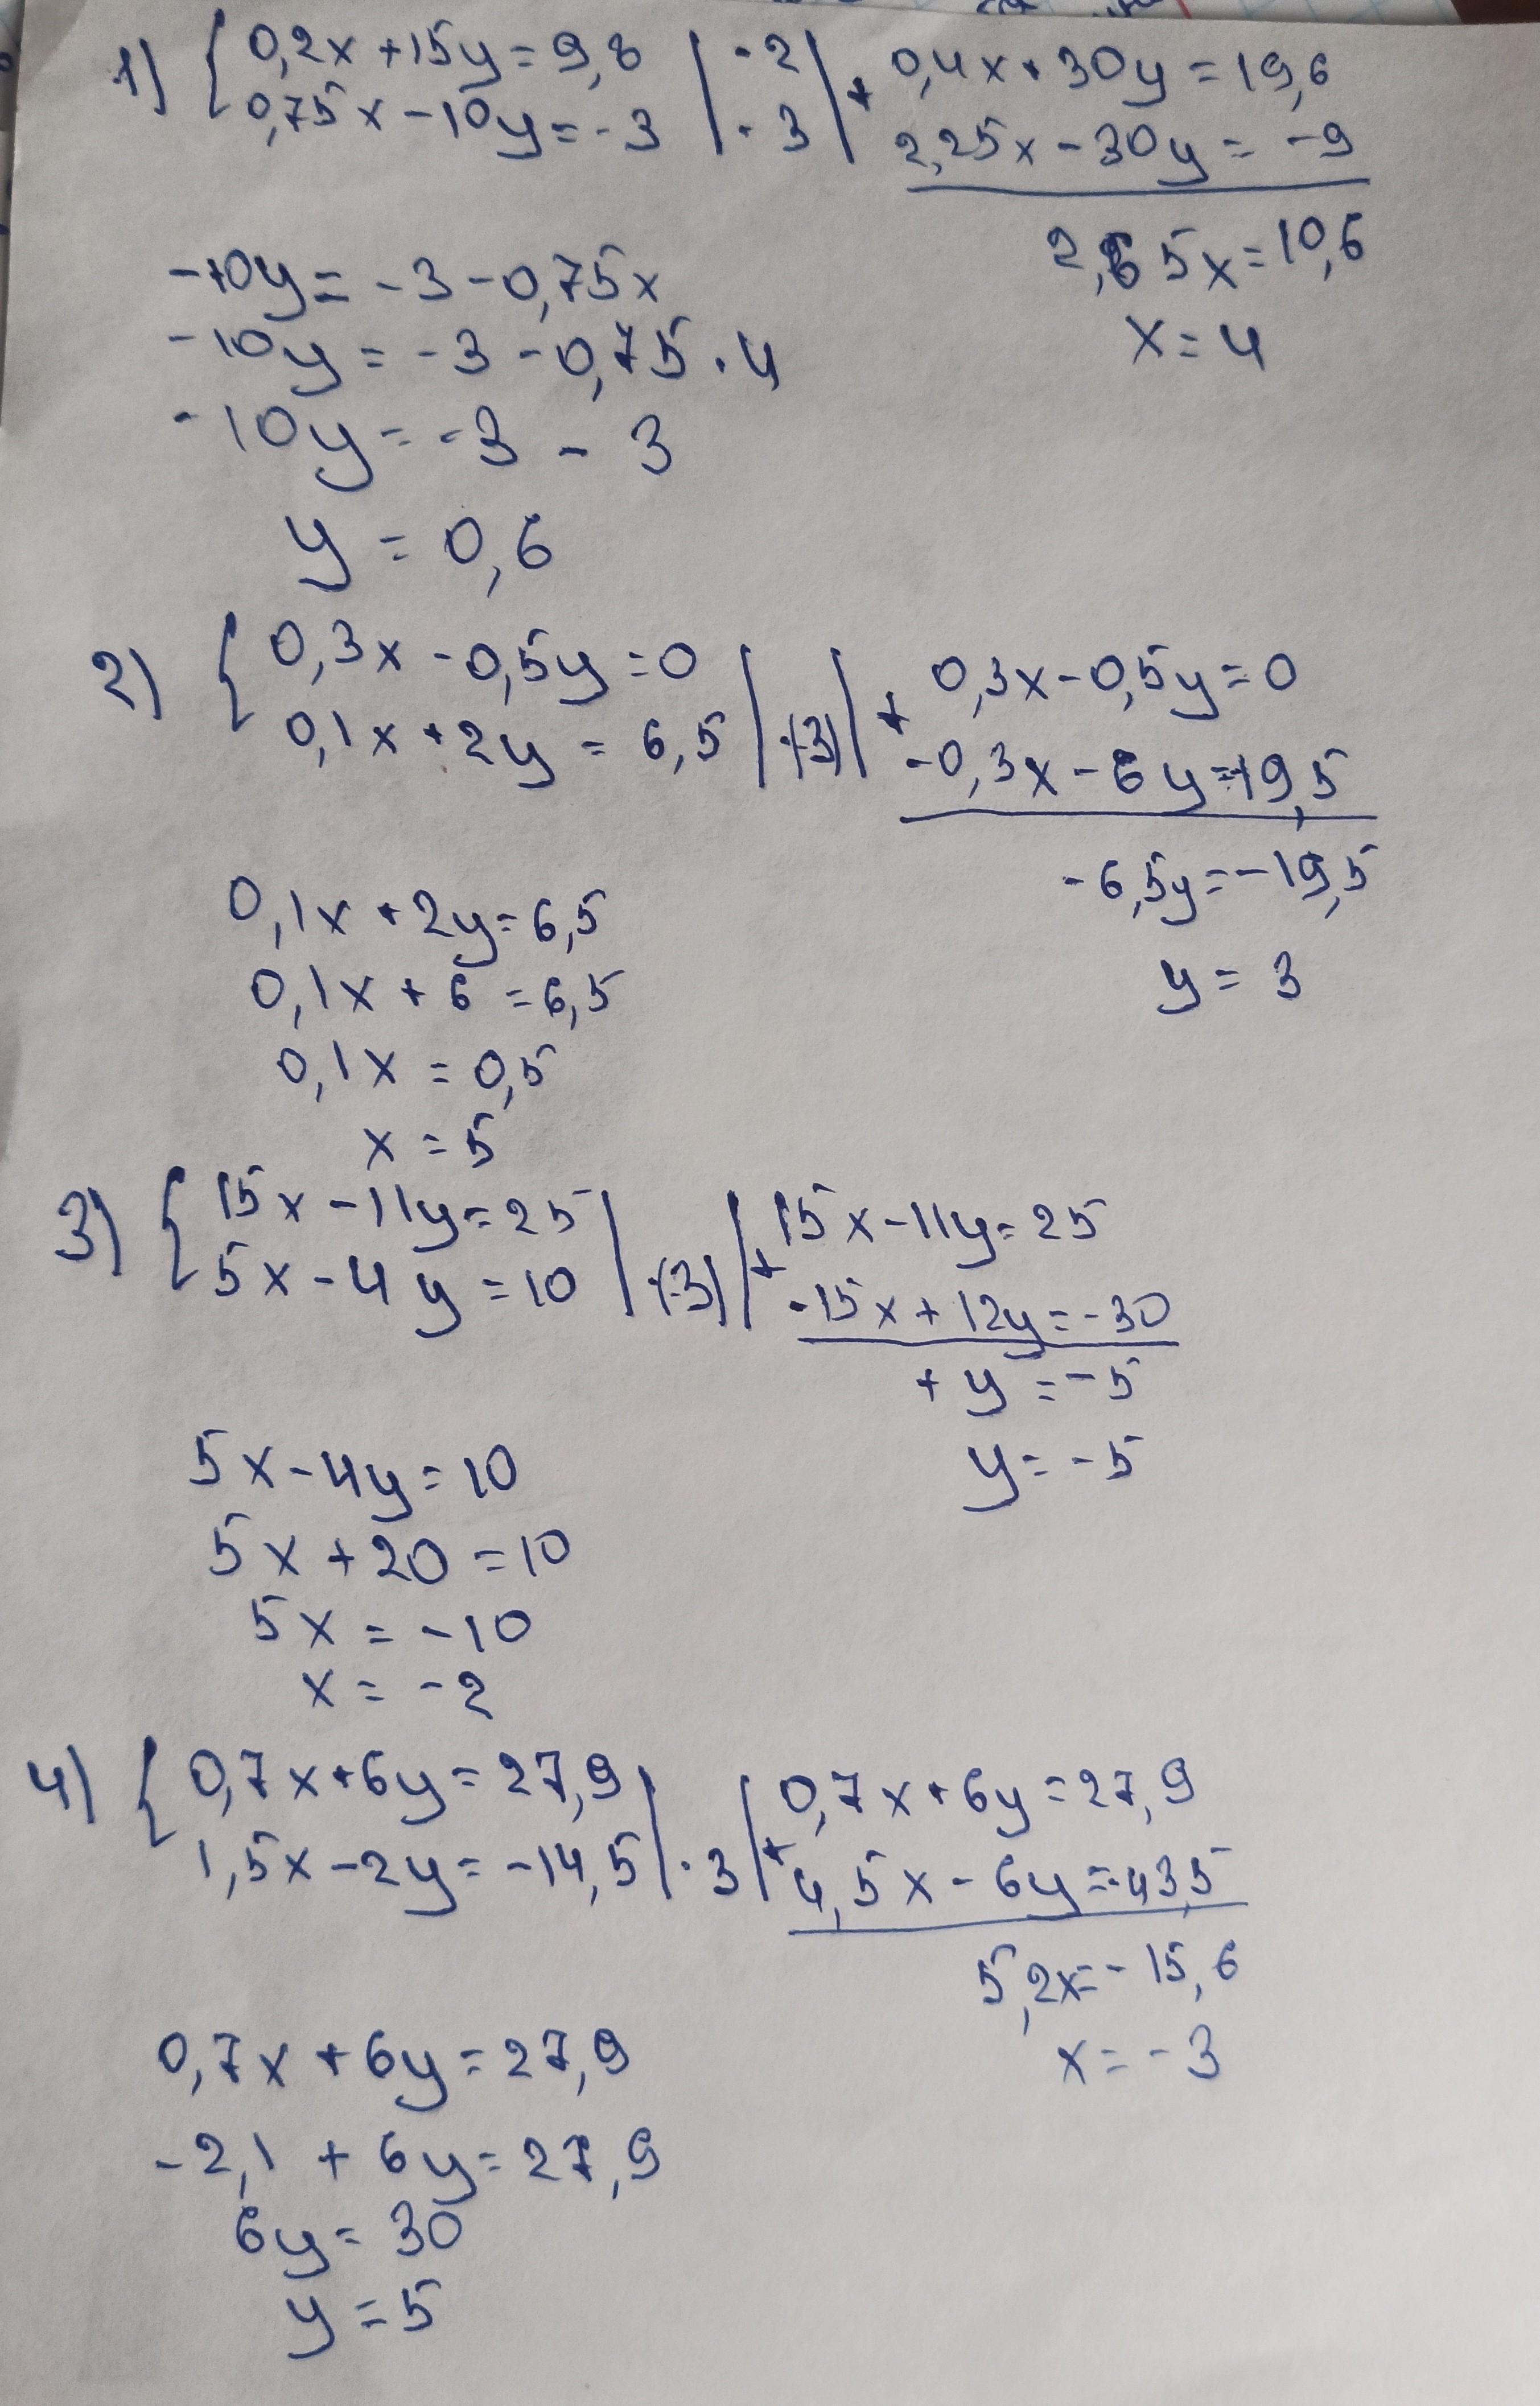 1) { 0,2x + 15y = 9,8 | · 2 | + 0,4x + 30y = 19,6
0,75x - 10y = -3 | · 3 | 2,25x - 30y = -9
2,65x = 10,6
x = 4
-10y = -3 - 0,75x
-10y = -3 - 0,75 · 4
-10y = -3 - 3
y = 0,6
2) { 0,3x - 0,5y = 0 | | + 0,3x - 0,5y = 0
0,1x + 2y = 6,5 | ·(-3) | -0,3x - 6y = -19,5
-6,5y = -19,5
y = 3
0,1x + 2y = 6,5
0,1x + 6 = 6,5
0,1x = 0,5
x = 5
3) { 15x - 11y = 25 | | + 15x - 11y = 25
5x - 4y = 10 | ·(-3) | -15x + 12y = -30
+ y = -5
y = -5
5x - 4y = 10
5x + 20 = 10
5x = -10
x = -2
4) { 0,7x + 6y = 27,9 | | + 0,7x + 6y = 27,9
1,5x - 2y = -14,5 | · 3 | 4,5x - 6y = -43,5
5,2x = -15,6
x = -3
0,7x + 6y = 27,9
-2,1 + 6y = 27,9
6y = 30
y = 5